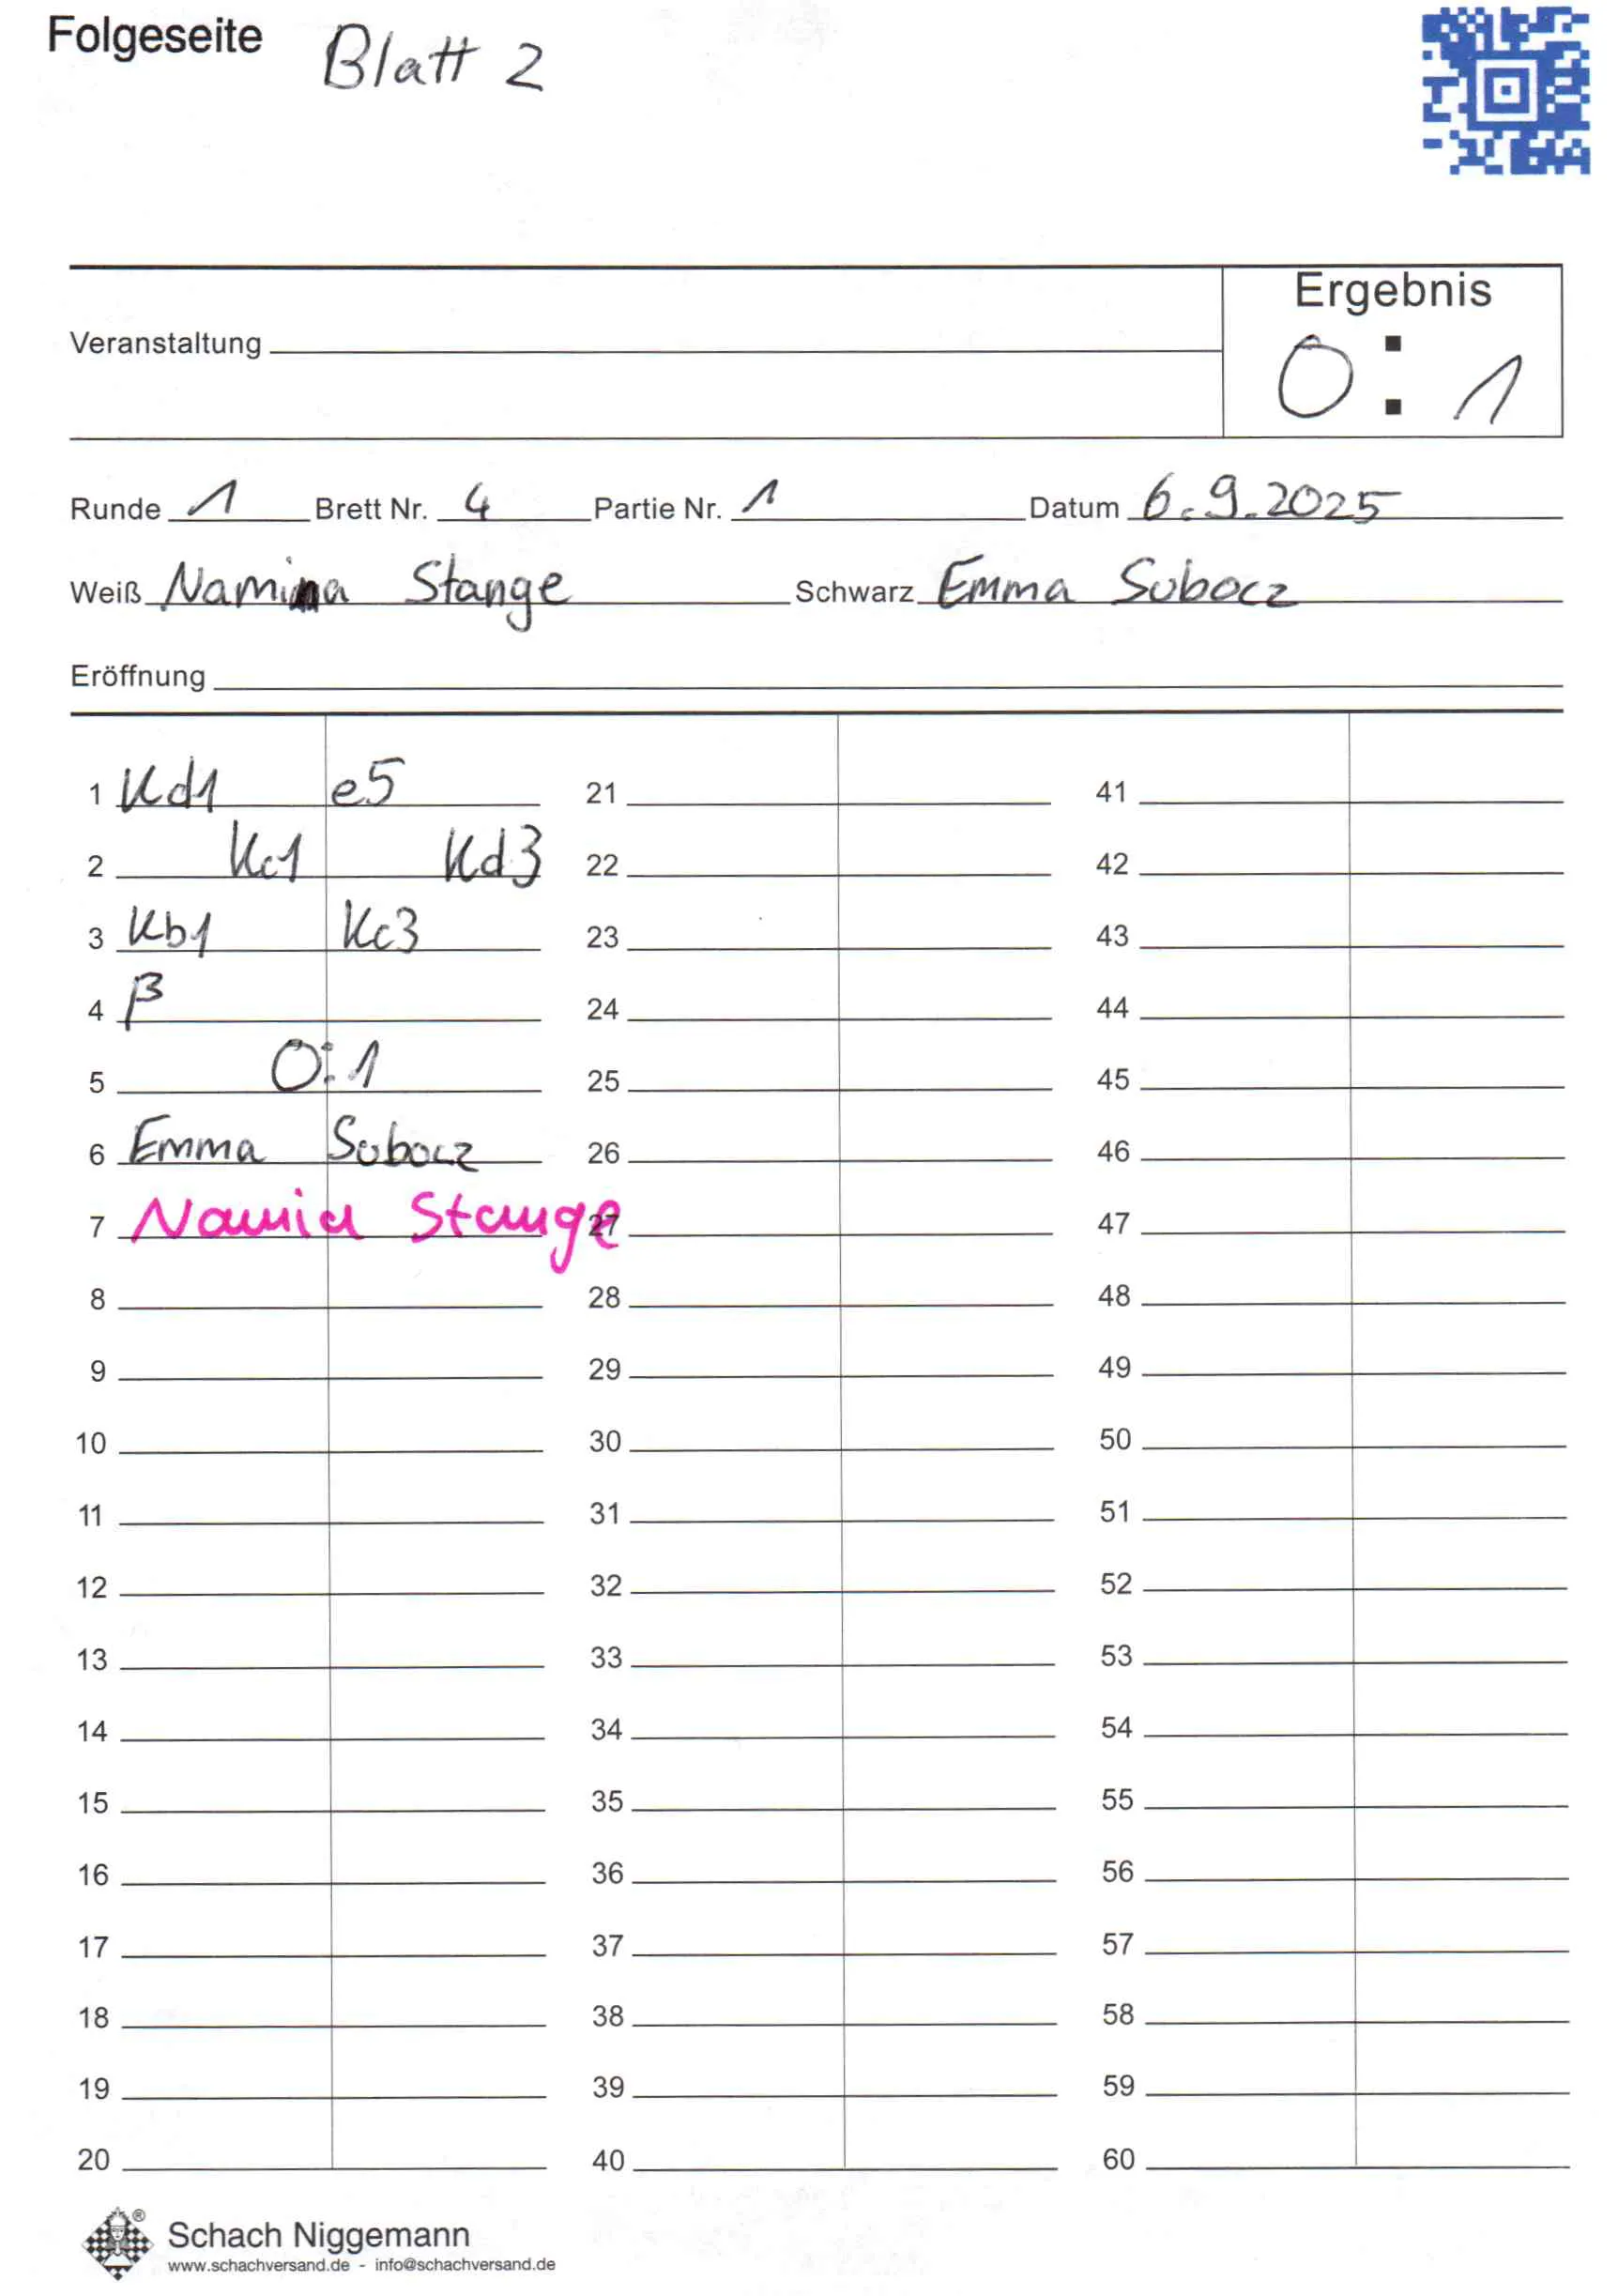 Folgeseite Blatt 2
Ergebnis
Veranstaltung
0 : 1
Runde 1 Brett Nr. 4 Partie Nr. 1 Datum 6.9.2025
Weiß Stange Schwarz Emma Subocz
Eröffnung
1 Kd1 e5 21 41
2 Kc1 Kd3 22 42
3 Kb1 Kc3 23 43
4 β 24 44
5 0:1 25 45
6 Emma Subocz 26 46
7 Namia Stange 27 47
8 28 48
9 29 49
10 30 50
11 31 51
12 32 52
13 33 53
14 34 54
15 35 55
16 36 56
17 37 57
18 38 58
19 39 59
20 40 60
® Schach Niggemann
www.schachversand.de - info@schachversand.de